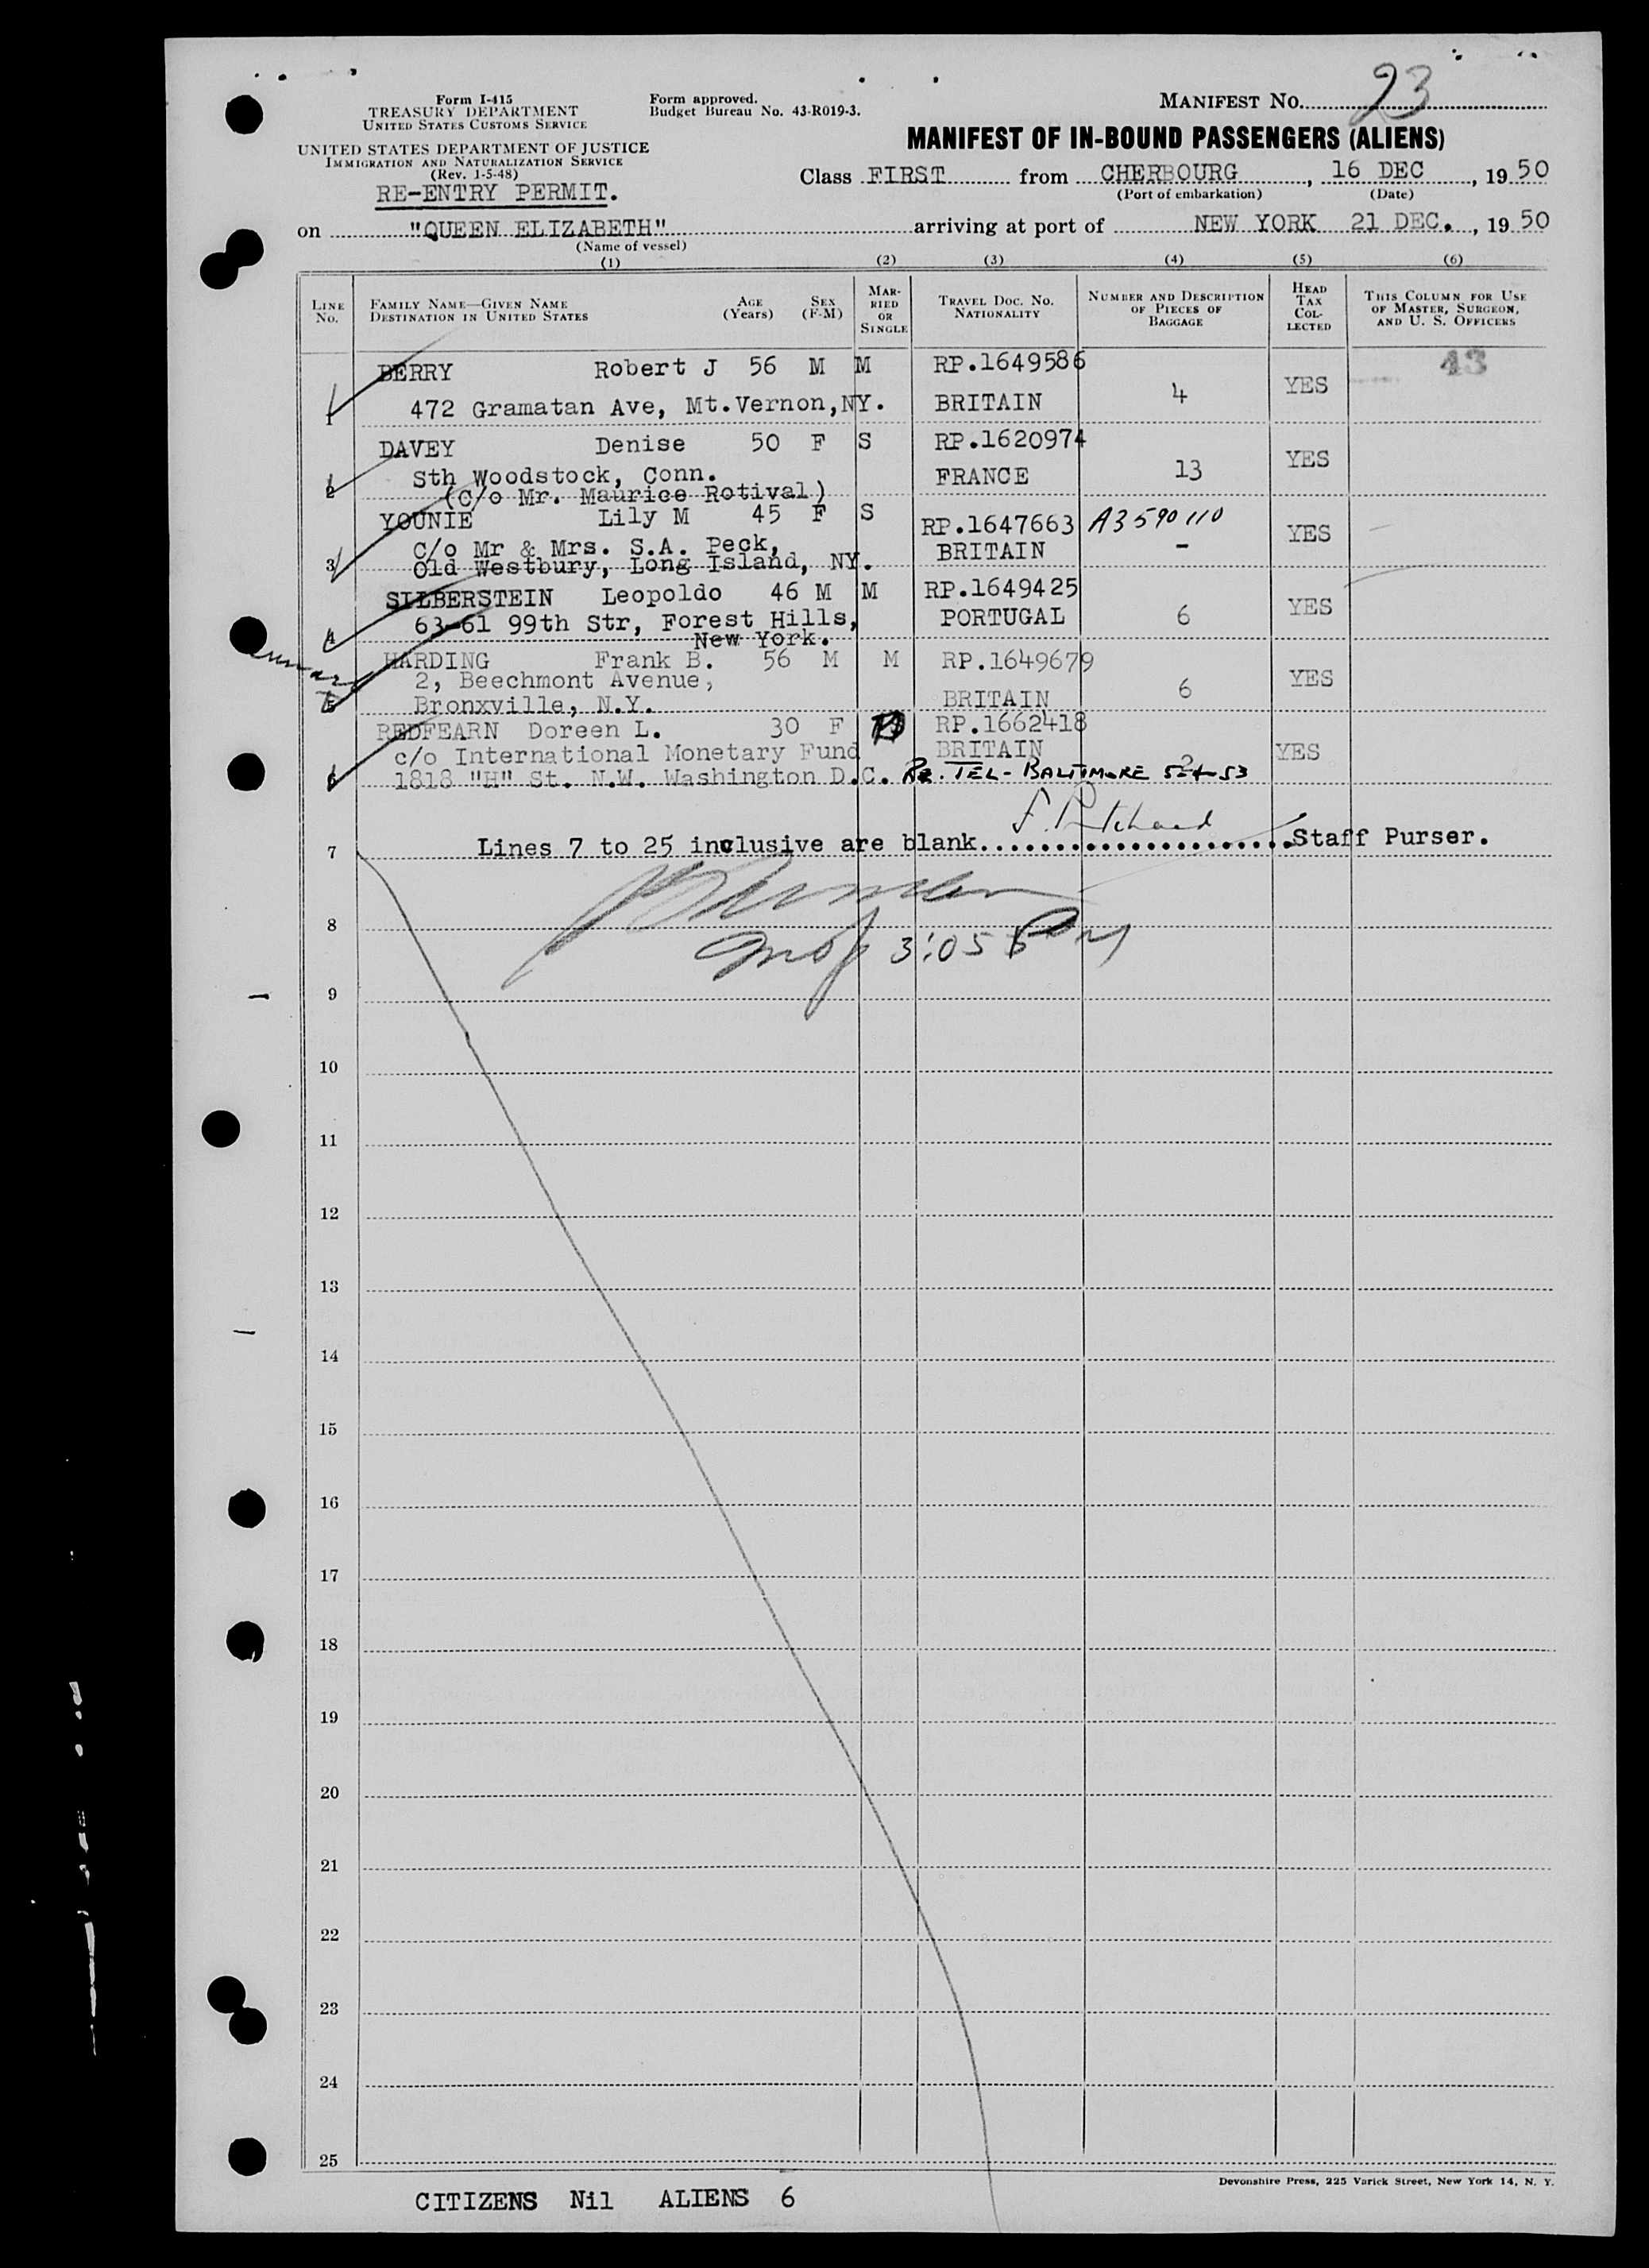 Form I-415
TREASURY DEPARTMENT
UNITED STATES CUSTOMS SERVICE
UNITED STATES DEPARTMENT OF JUSTICE
IMMIGRATION AND NATURALIZATION SERVICE
(Rev. 1-5-48)
RE-ENTRY PERMIT.
Form approved.
Budget Bureau No. 43-R019-3.
MANIFEST No. 23
MANIFEST OF IN-BOUND PASSENGERS (ALIENS)
Class FIRST from CHERBOURG, 16 DEC, 19 50
(Port of embarkation) (Date)
on "QUEEN ELIZABETH" arriving at port of NEW YORK 21 DEC., 19 50
(Name of vessel)
(1) (2) (3) (4) (5) (6)
LINE No. FAMILY NAME—GIVEN NAME DESTINATION IN UNITED STATES AGE (Years) SEX (F-M) MARRIED OR SINGLE TRAVEL DOC. No. NATIONALITY NUMBER AND DESCRIPTION OF PIECES OF BAGGAGE HEAD TAX COLLECTED THIS COLUMN FOR USE OF MASTER, SURGEON, AND U. S. OFFICERS
BERRY Robert J 56 M M RP.1649586 43
1 472 Gramatan Ave, Mt.Vernon,NY. BRITAIN 4 YES
DAVEY Denise 50 F S RP.1620974
2 Sth Woodstock, Conn. FRANCE 13 YES
(c/o Mr. Maurice Rotival)
YOUNIE Lily M 45 F S RP.1647663 A3590110
c/o Mr & Mrs. S.A. Peck, BRITAIN - YES
3 Old Westbury, Long Island, NY.
SILBERSTEIN Leopoldo 46 M M RP.1649425
4 63-61 99th Str, Forest Hills, PORTUGAL 6 YES
New York.
HARDING Frank B. 56 M M RP.1649679
2, Beechmont Avenue, 6 YES
5 Bronxville, N.Y. BRITAIN
REDFEARN Doreen L. 30 F RP.1662418
c/o International Monetary Fund BRITAIN 2 YES
6 1818 "H" St. N.W. Washington D.C. Re. TEL - BALTIMORE 5-4-53
F. Pritchard
7 Lines 7 to 25 inclusive are blank......................Staff Purser.
8
3:05 PM
9
10
11
12
13
14
15
16
17
18
19
20
21
22
23
24
25
Devonshire Press, 225 Varick Street, New York 14, N. Y.
CITIZENS Nil ALIENS 6